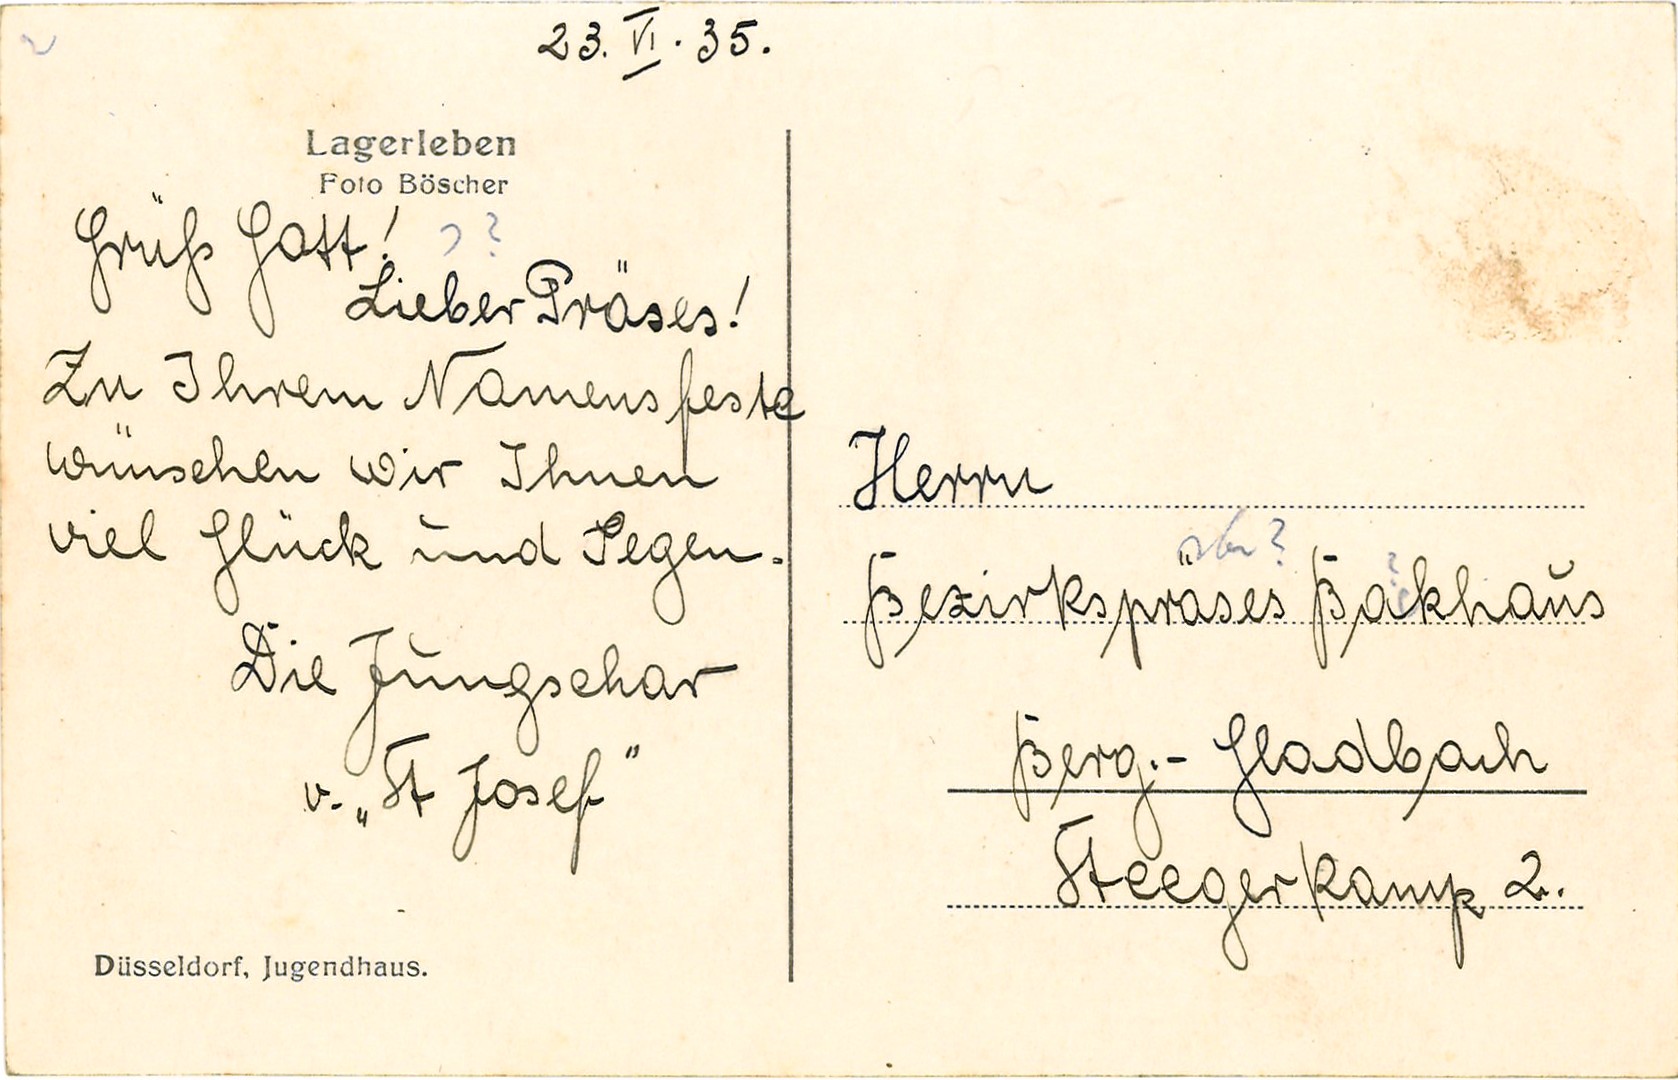 23. VI. 35.
Lagerleben
Foto Böscher
Grüß Gott!
?
Lieber Präses!
Zu Ihrem Namensfeste
wünschen wir Ihnen
viel Glück und Segen.
Die Jungschar
v. „St Josef"
Düsseldorf, Jugendhaus.
Herrn
?
Bezirkspräses Bäkhaus
Berg.- Gladbach
Steegerkamp 2.